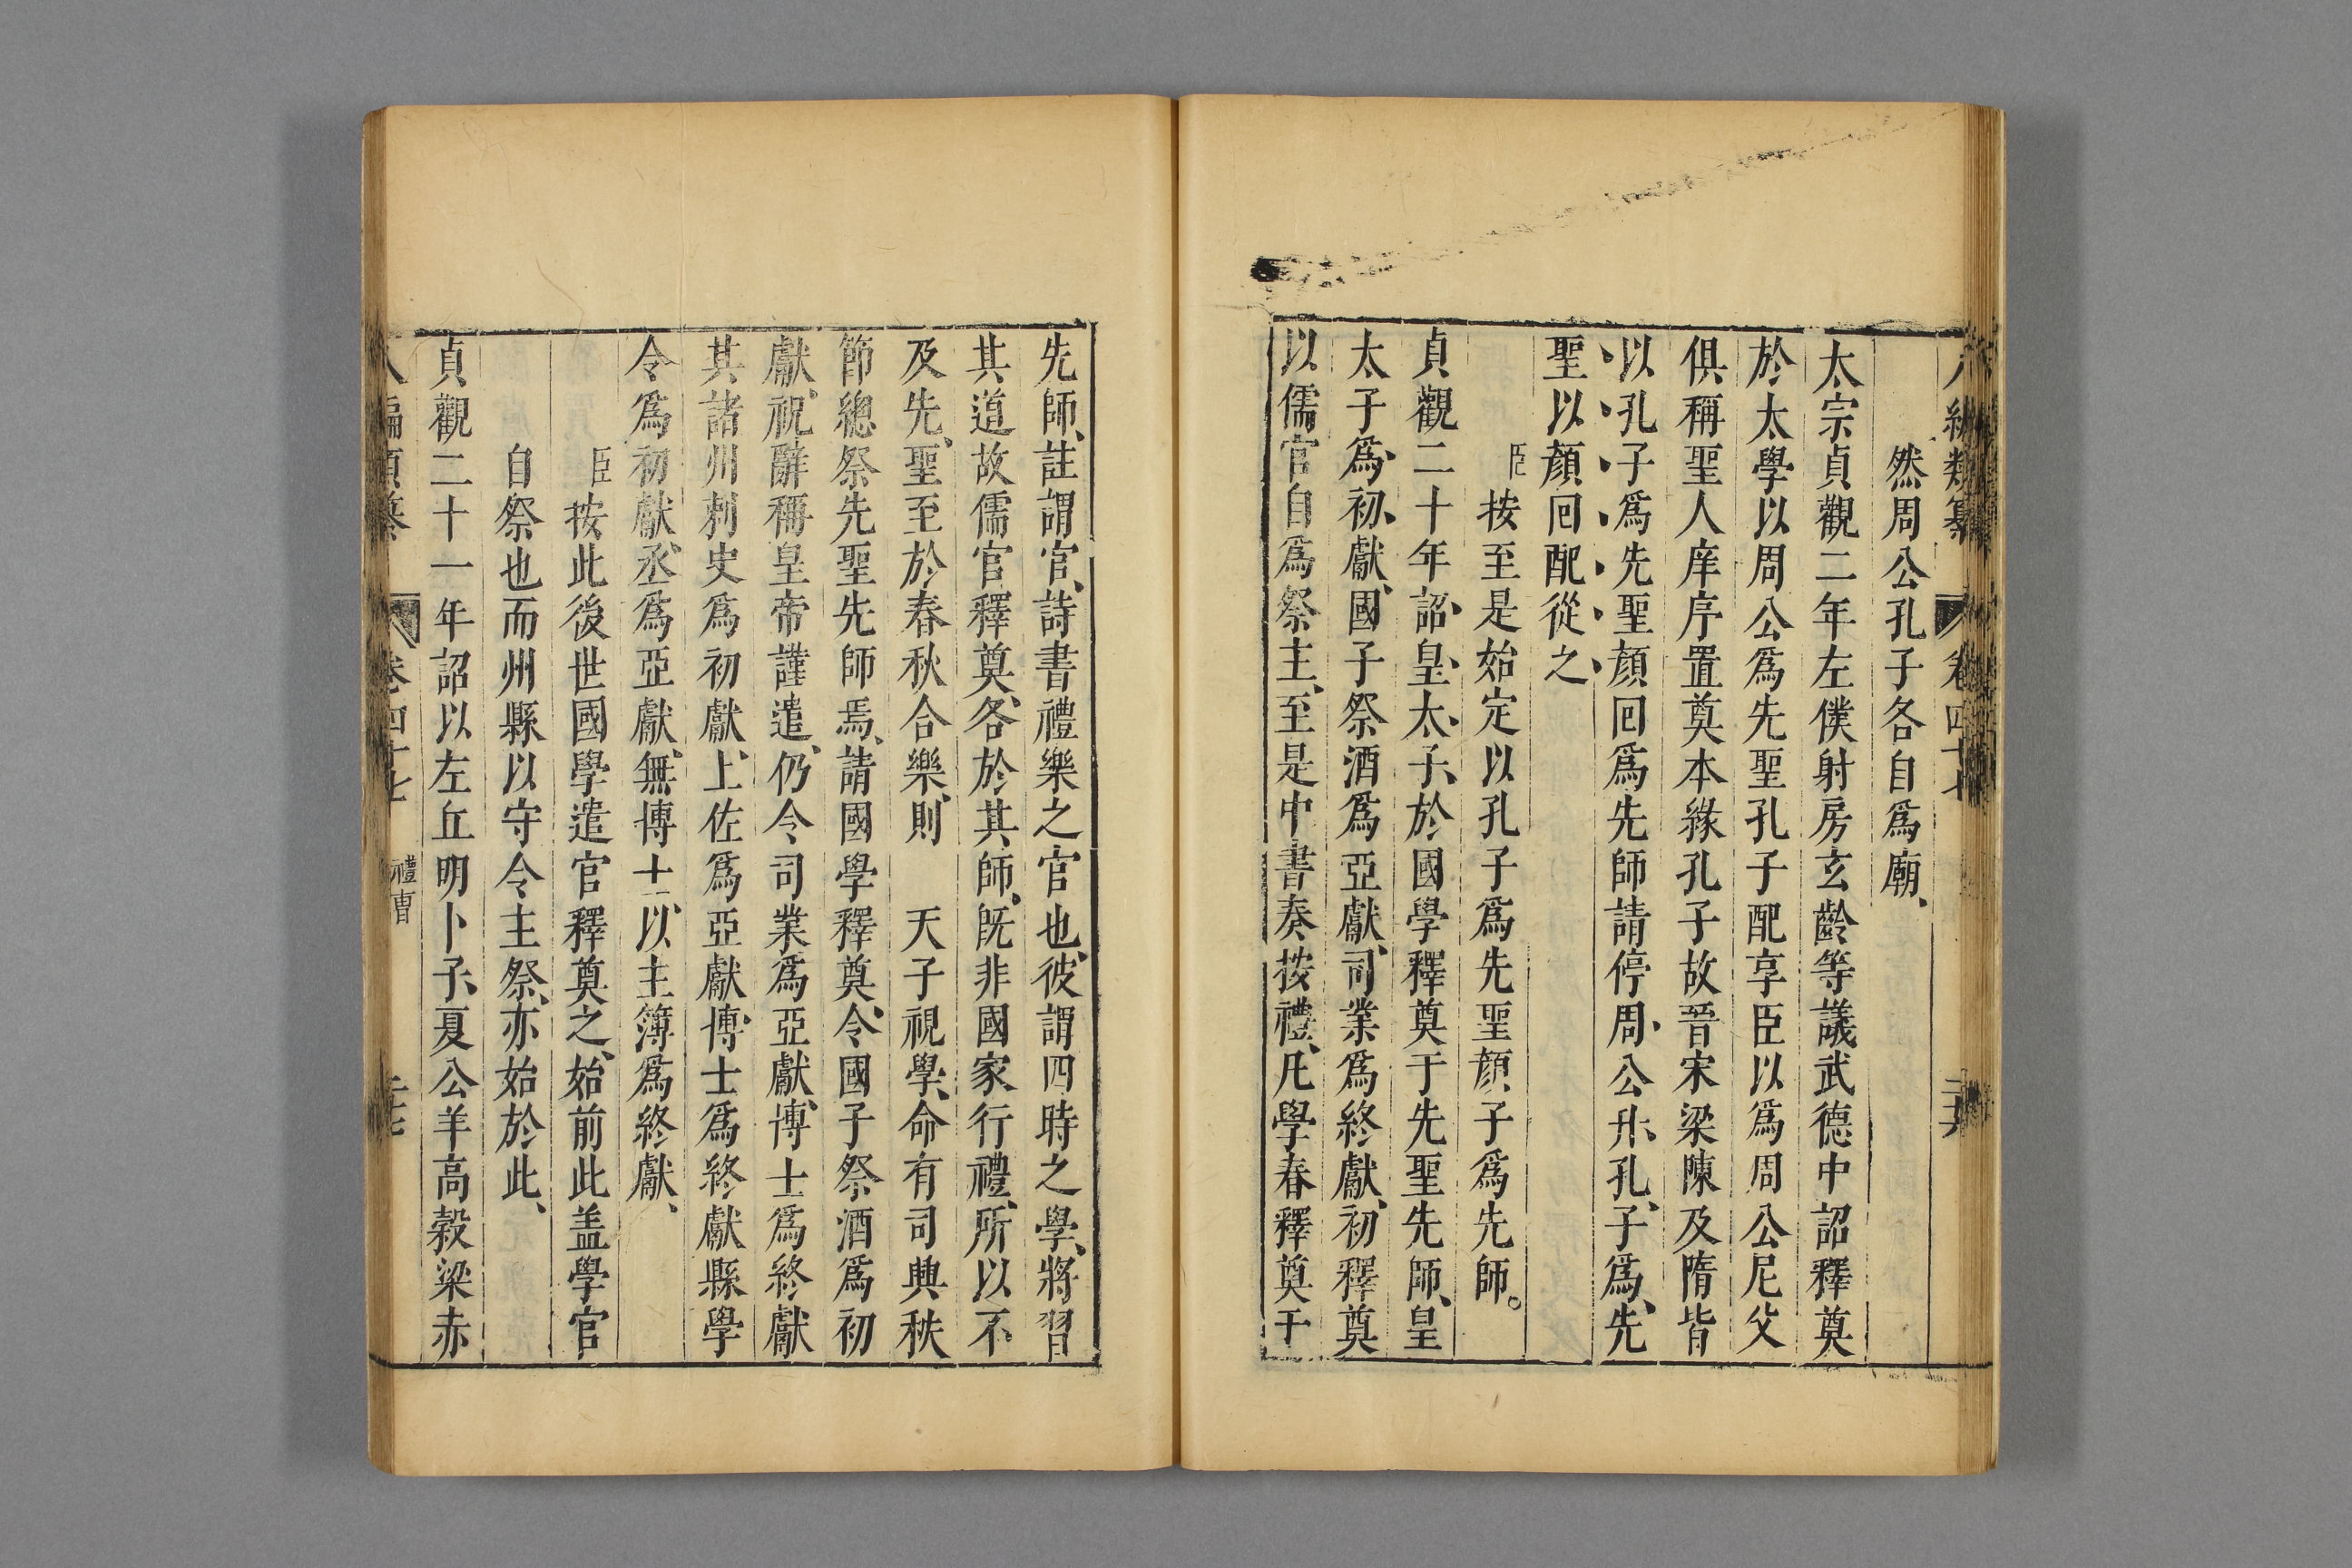 八編類纂 卷四十七 二十六
然周公孔子各自爲廟、
太宗貞觀二年左僕射房玄齡等議武德中詔釋奠
於太學以周公爲先聖孔子配享臣以爲周公尼父
俱稱聖人庠序置奠本緣孔子故晉宋梁陳及隋皆
以孔子爲先聖顏回爲先師請停周公升孔子爲先
聖以顏回配從之
臣按至是始定以孔子爲先聖顏子爲先師。
貞觀二十年詔皇太子於國學釋奠于先聖先師、皇
太子爲初獻、國子祭酒爲亞獻、司業爲終獻、初釋奠
以儒官自爲祭主、至是中書奏按禮、凡學春釋奠于
先師、註謂官、詩書禮樂之官也、彼謂四時之學、將習
其道故儒官釋奠、各於其師、旣非國家行禮、所以不
及先聖、至於春秋合樂、則 天子視學、命有司興秩
節總祭先聖先師焉、請國學釋奠、令國子祭酒爲初
獻、祝辭稱皇帝謹遣、仍令司業爲亞獻、博士爲終獻
其諸州刺史爲初獻、上佐爲亞獻、博士爲終獻縣學
令爲初獻、丞爲亞獻、無博士、以主簿爲終獻、
臣按此後世國學遣官釋奠之始、前此盖學官
自祭也而州縣以守令主祭、亦始於此、
貞觀二十一年詔以左丘明卜子夏公羊高穀梁赤
八編類纂 卷四十七 禮曹 二十七